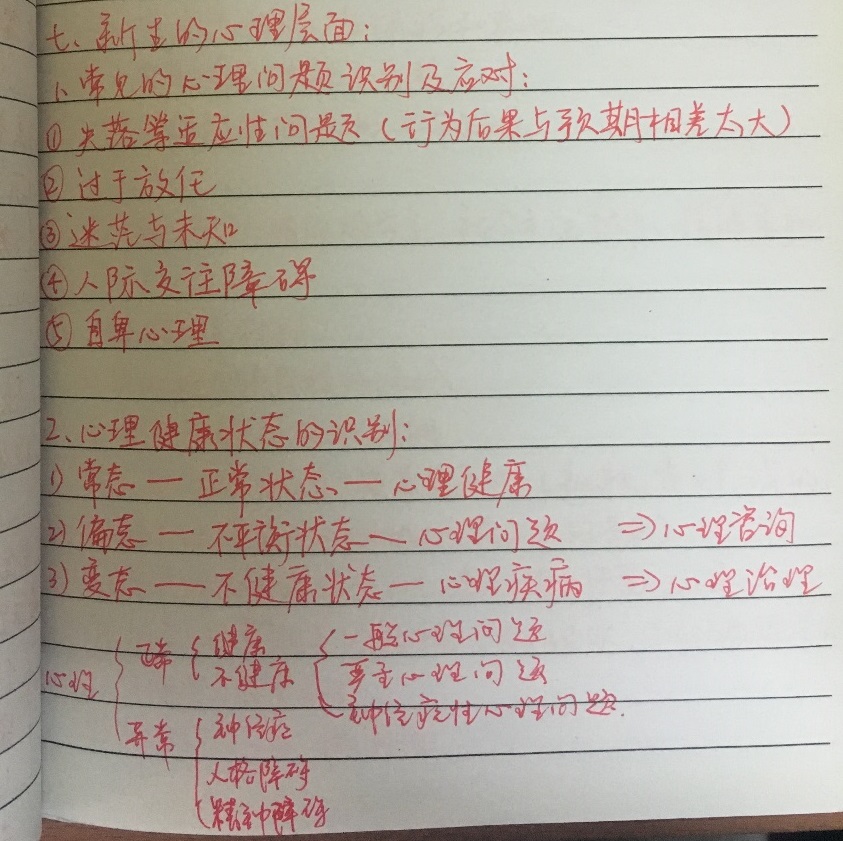 七、新生的心理层面：
1、常见的心理问题识别及应对：
① 失落等适应性问题（行为后果与预期相差太大）
② 过于放任
③ 迷茫与未知
④ 人际交往障碍
⑤ 自卑心理
2、心理健康状态的识别：
1) 常态 — 正常状态 — 心理健康
2) 偏态 — 不平衡状态 — 心理问题 ⇒ 心理咨询
3) 变态 — 不健康状态 — 心理疾病 ⇒ 心理治理
心理 { 正常 { 健康
不健康 { 一般心理问题
严重心理问题
神经症性心理问题.
异常 { 神经症
人格障碍
精神障碍